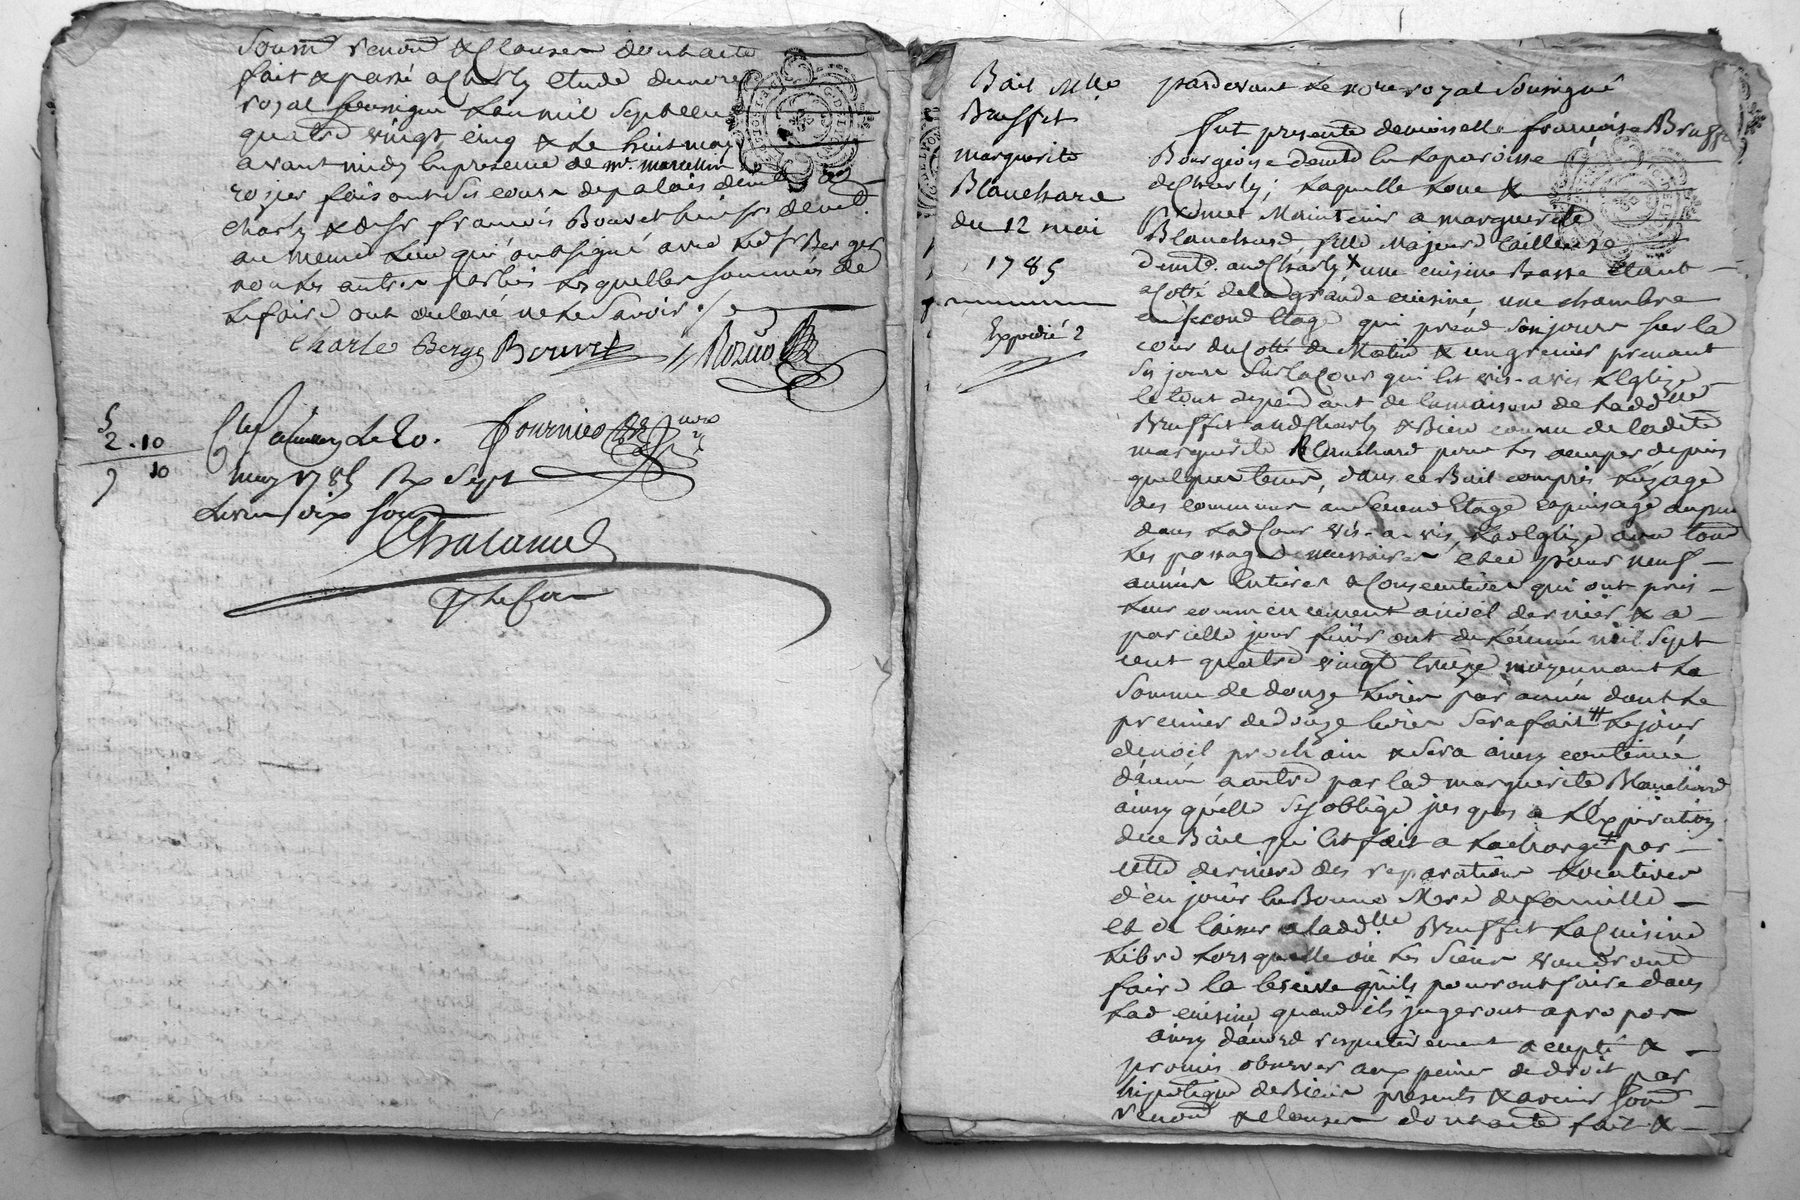 Soum̃ renoñ & Clauses dont acte
fait & passé a Charly etude du no.re
royal soussigné L'an mil sept cent
quatre vingt cinq & le huit may
avant midy En presence de mr. marcellin
rozier faisant ses cours de palais demt a
charly & de sr françois Bouvet demt
au meme Lieu qui ont signé avec Led. sr Berger
non les autres parties Lesquelles sommées de
Le faire ont declaré ne Le Savoir ./.
Charle Berge Bouvet Rozier
5
2 . 10
10
Cllé a Le 20. Fournier
may 1785 Rx Sept
Livres dix sous
Chalamel
Bail Mlle
Bruffet
marguerite
Blanchard
du 12 mai
1785
Expedié 2
pardevant Le no.re royal Soussigné
fut presente demoiselle françoise Bruffet
Bourgeoise demte en La paroisse
de Charly, Laquelle Loue &
promet Maintenir a marguerite
Blanchard, fille Majeure tailleuse
demte. aud Charly & une cuisine Basse Etant
a Coté de la grande cuisine une chambre
au second Etage qui prend son jour sur la
cour du Coté de Matin & un grenier prenant
Ses jours Sur la Cour qui Est vis-a-vis L'Eglize
le tout dependant de la maison de Lad dlle
Bruffet aud Charly & Bien connu de ladite
marguerite Blanchard pour Les occuper depuis
quelques tems, dans ce Bail compris L'uzage
des communs au second Etage & puisage au puis
dans Lad Cour vis-a-vis Lad Eglize avec tous
Les passages necessaires Et ce pour neuf
années Entieres & Consecutives qui ont pris
Leur commencement a noel dernier & a
pareille jour finiront de L'année mil Sept
cent quatre vingt treize moyennant La
Somme de douze Livres par année dont Le
premier de douze livres Sera fait # Le jour
de noel prochain & sera ainsy continué
d'année a autre par lad marguerite Blanchard
ainsy qu'elle S'y oblige jusques a L'Expiration
du Bail qui Est fait a La charge # par
cette derniere des reparations Locatives
d'en jouir En Bonne Mere de famille
et de laisser a lad d.lle Bruffet La Cuisine
Libre Lorsquelle ou Les Siens voudront
faire la lessive qu'ils pourront faire dans
Lad cuisine quand ils jugeront a propos
ainsy d'accord respectivement accepté &
promis observer aux peines de droit par
hipoteque de Biens presents & avenir Soum̃
renoñ & clauses dont acte fait &